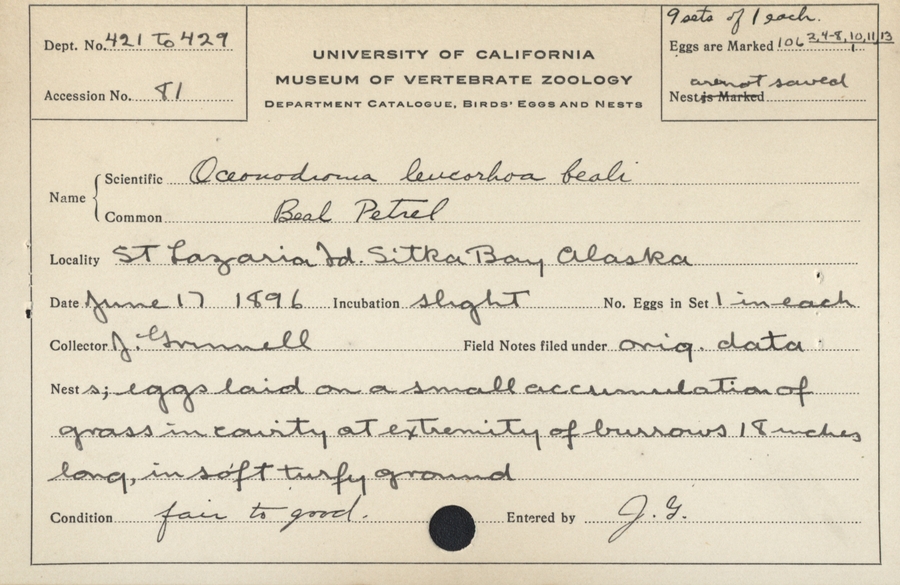 9 sets of 1 each.
Dept. No. 421 To 429
Eggs are Marked 106 2,4-8,10,11,13 / 1
UNIVERSITY OF CALIFORNIA
MUSEUM OF VERTEBRATE ZOOLOGY
DEPARTMENT CATALOGUE, BIRDS' EGGS AND NESTS
Accession No. 81
are not saved
Nest is Marked
Name
Scientific Oceanodroma leucorhoa beali
Common Beal Petrel
Locality St Lazaria Id. Sitka Bay Alaska
Date June 17 1896 Incubation slight No. Eggs in Set 1 in each
Collector J. Grinnell Field Notes filed under orig. data
Nest s; eggs laid on a small accumulation of
grass in cavity at extremity of burrows 18 inches
long, in soft turfy ground
Condition fair to good. Entered by J. G.